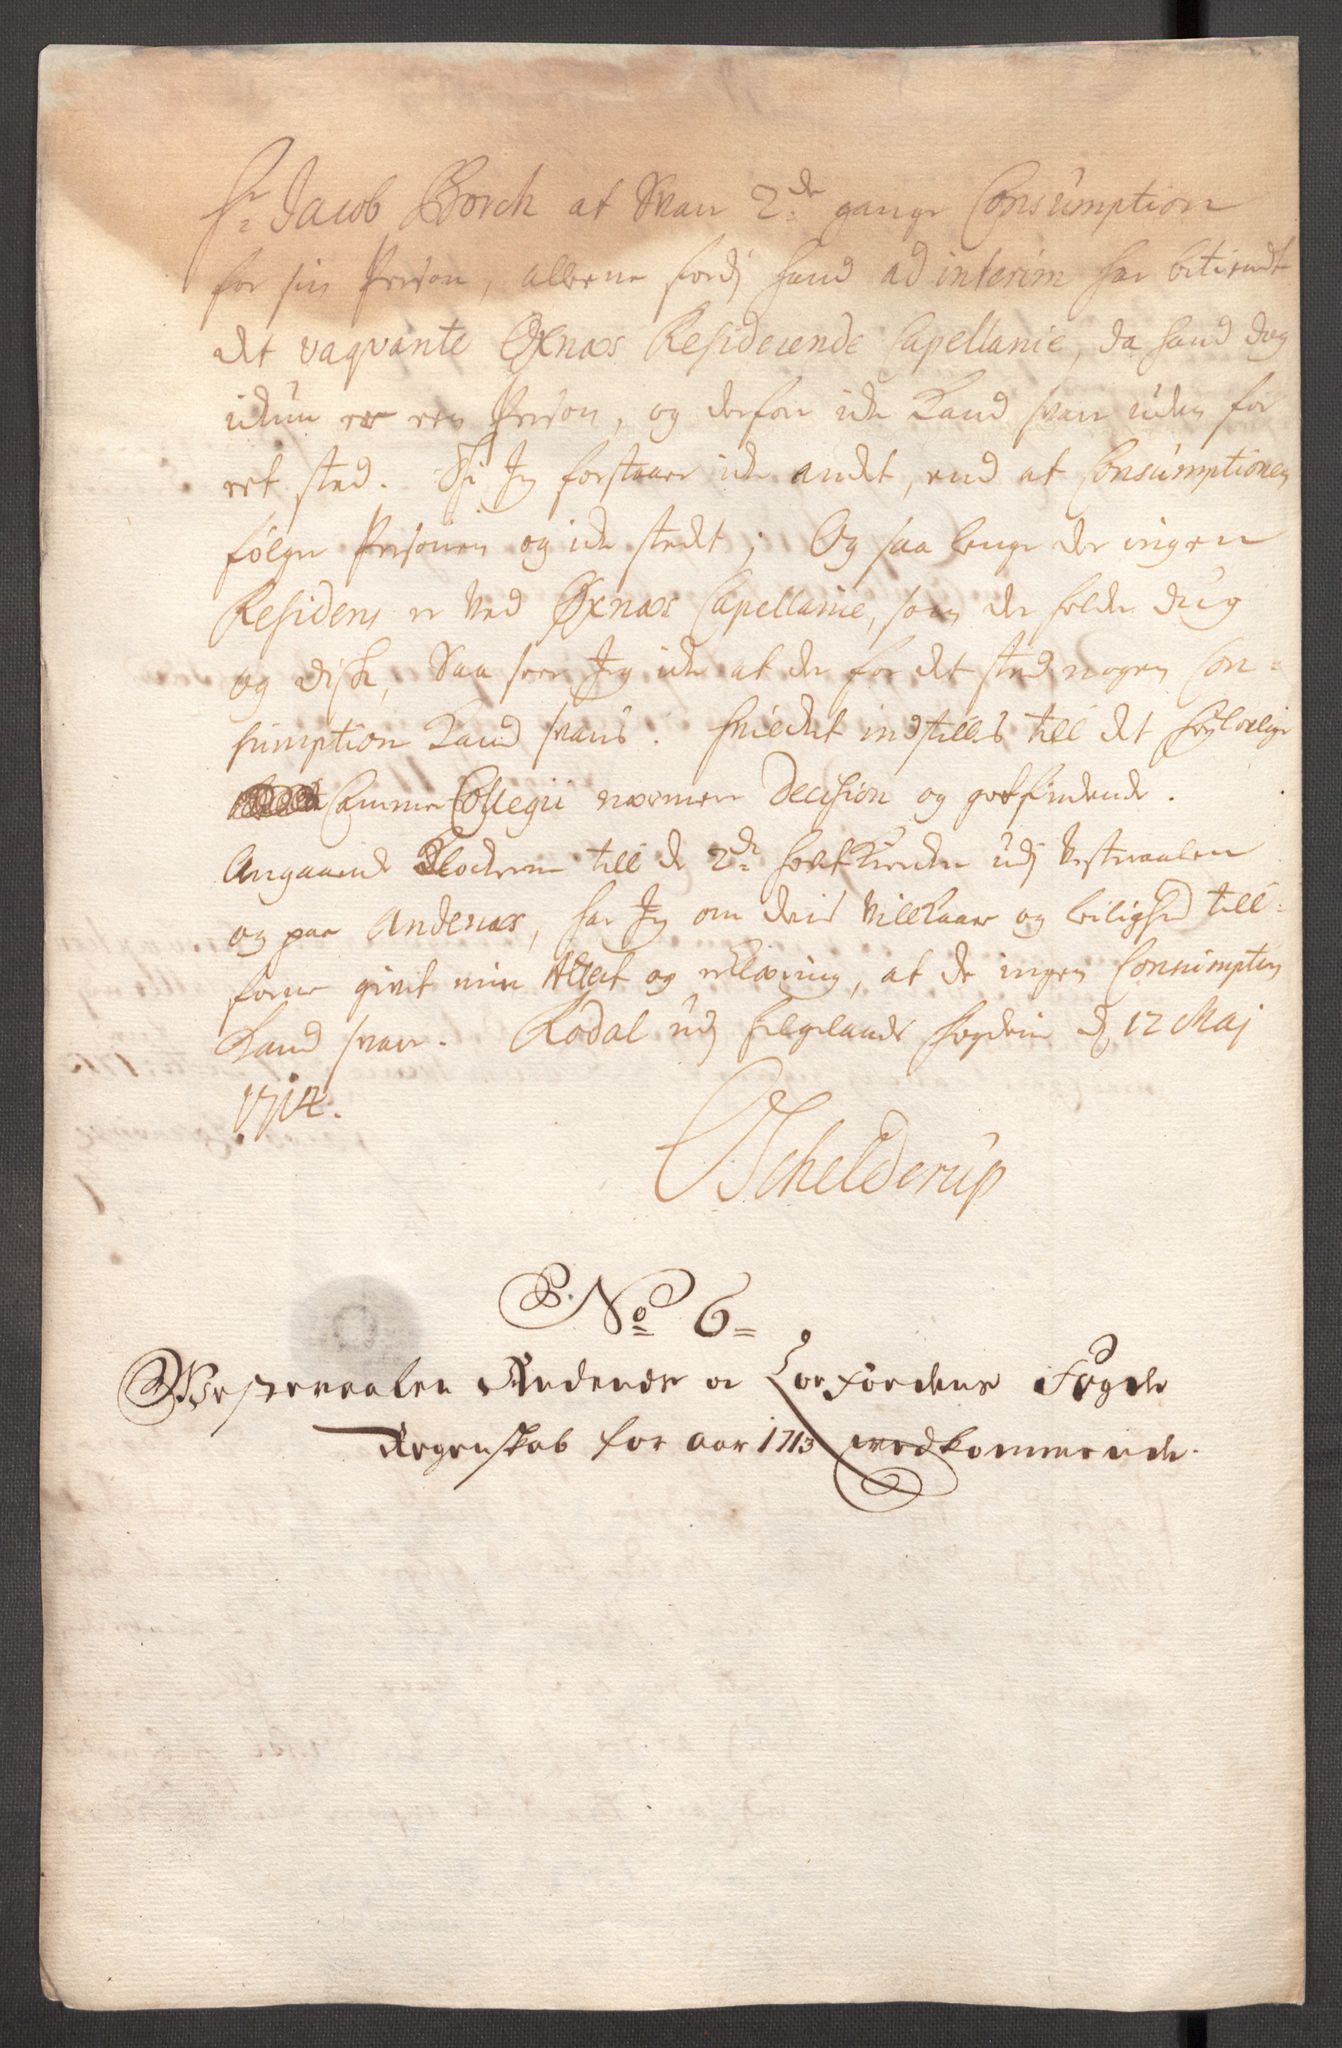 Hr Jacob Borch at svare 2de gange Consumption
for sin Person, allene fordj hand ad interim har betiendt
det vaqvante Øxnæs Residerende Capellanie, da hand dog
ickun er een Person, og derfor icke kand svare uden for
eet sted. Thi Jeg forstaaer icke andet, end at Consumptionen
følger Personen og icke stedet; Og saa lenge der ingen
Residens er ved Øxnæs Capellanie, som der holder dug
og disk, Saa seer Jeg icke at der for det sted nogen Con=
sumption kand svaris. Hvilcket indstilles till det Høylovlige
Cammer Collegii nærmere Decision og gotfindende.
Angaaende Klockerne till de 2de HovetKircker udj Vesteraalen
og paa Andenæs, har Jeg om deris Villkaar og leilighed till=
forne givet min Attest og erklæring, at de ingen Consumption
kand svare. Rødal udj Helgelands fogderie d. 12 Maj
1714.
Schelderup
No 6=
Westeraalen Andenæs og Lofodens Fogde
Regenskab for aar 1713 vedkommende.